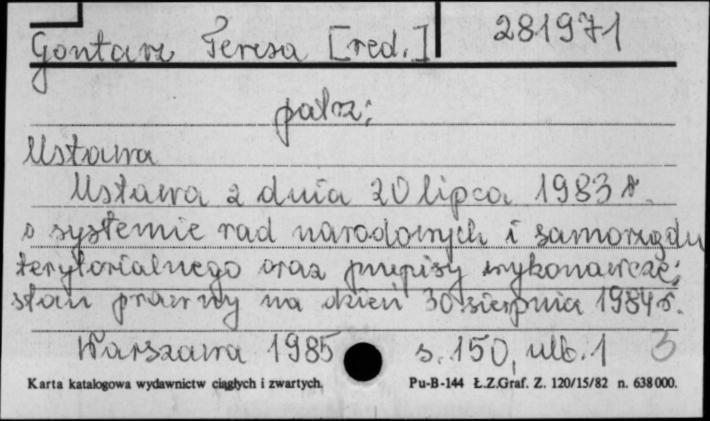 Gontarz Teresa [red.] 281971
patrz:
Ustawa
Ustawa z dnia 20 lipca 1983 r.
o systemie rad narodowych i samorządu
terytorialnego oraz przepisy wykonawcze;
stan prawny na dzień 30 sierpnia 1984 r.
Warszawa 1985 s. 150, ulb. 1 3
Karta katalogowa wydawnictw ciągłych i zwartych. Pu-B-144 Ł.Z.Graf. Z. 120/15/82 n. 638000.